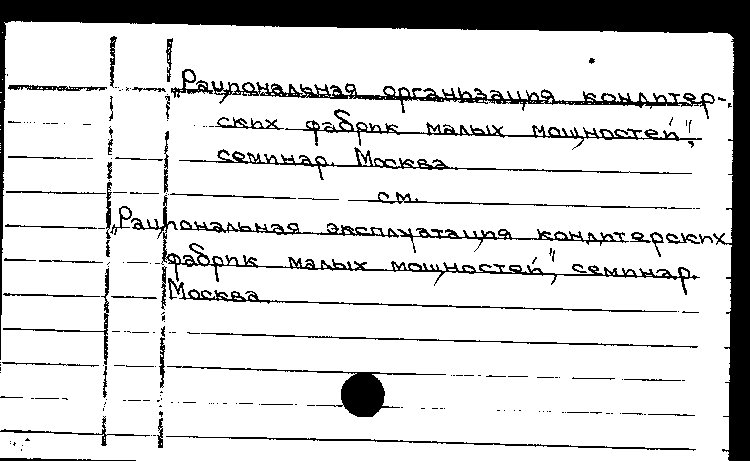 „Рациональная организация кондитер-
ских фабрик малых мощностей",
семинар. Москва.
см.
„Рациональная эксплуатация кондитерских
фабрик малых мощностей", семинар.
Москва.